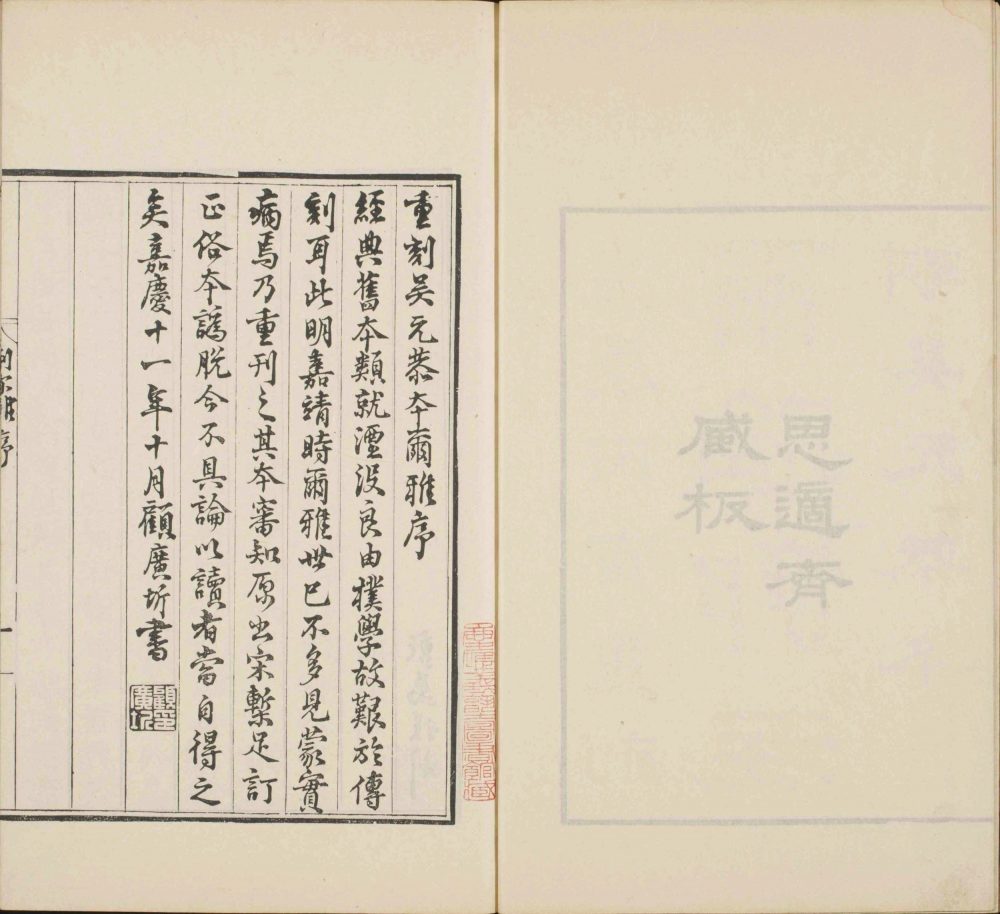 思適齊
臧板
重刻吳元恭本爾雅序
經典舊本類就湮没良由樸學故艱於傳
刻耳此明嘉靖時爾雅世已不多見蒙實
病焉乃重刊之其本審知原出宋槧足訂
正俗本譌脱今不具論以讀者當自得之
矣嘉慶十一年十月顧廣圻書
顧印廣圻
刻爾雅序
一